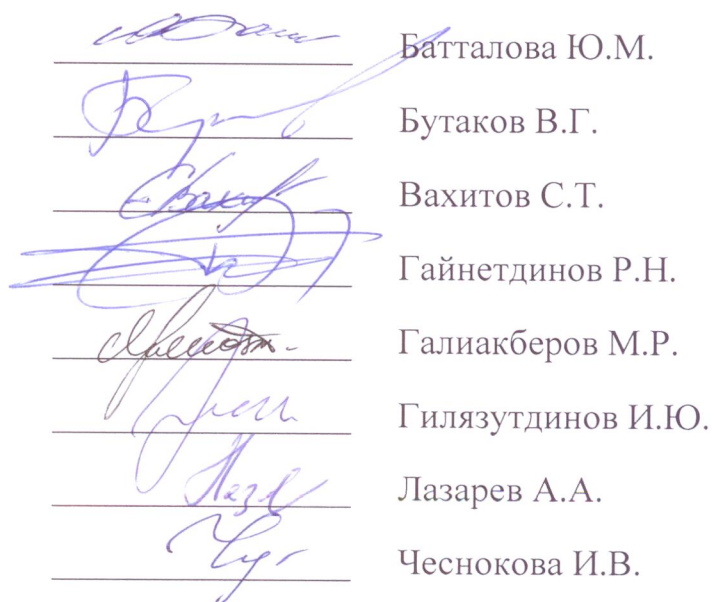 Батталова Ю.М.
Бутаков В.Г.
Вахитов С.Т.
Гайнетдинов Р.Н.
Галиакберов М.Р.
Гилязутдинов И.Ю.
Лазарев А.А.
Чеснокова И.В.